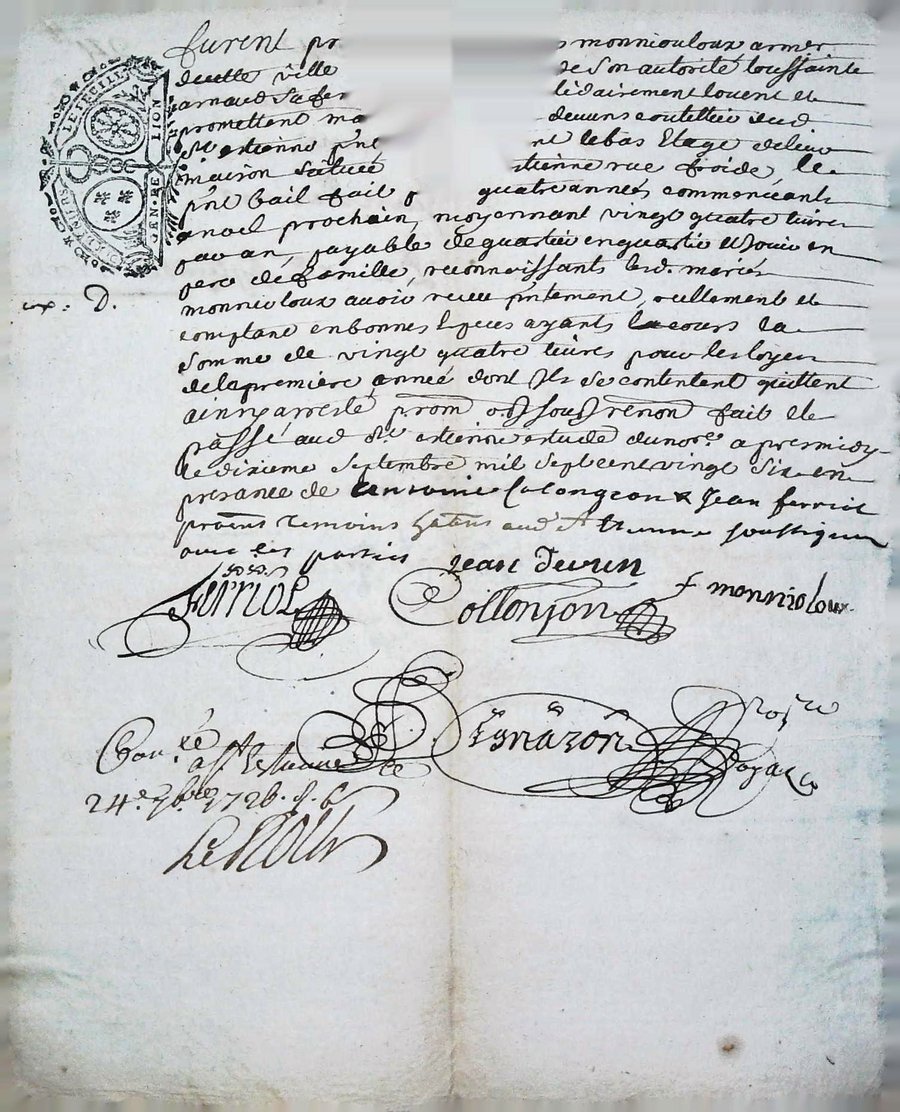 furent pr s monniouloux armer
de cette ville de Son autorité toussainte
arnaud Sa fe lidairement louent et
promettent ma devuns coutellier aud
St estienne pnt nt le bas Etage de leur
maison Scituée stienne rue froide, le
pnt bail fait quatre années commencants
a noel prochain, moyennant vingt quatre livres
par an, payable de quartier en quartier et Jouir en
pere de famille, reconnoissants lesd. mariés
monniouloux avoir receu pntement, reellement et
comptant en bonnes Especes ayants cours la
Somme de vingt quatre livres pour les loyers
de la premiere année dont Ils Se contentent quittent
ainsy arresté prom obl soub renon fait et
passé aud St estienne estude du nore apres midy
le dixieme Septembre mil Sept cent vingt Six en
presance de Collongeon & Jean ferriol
temoins aud St Etienne soussignes
avec les parties jean Devun
ferriol Collonjon f monnioloux
. D.
LE FEUILL
GEN. DE LION
Tgnazon noyre Royal
Con.lé a St Estienne le
24e 7bre 1726.